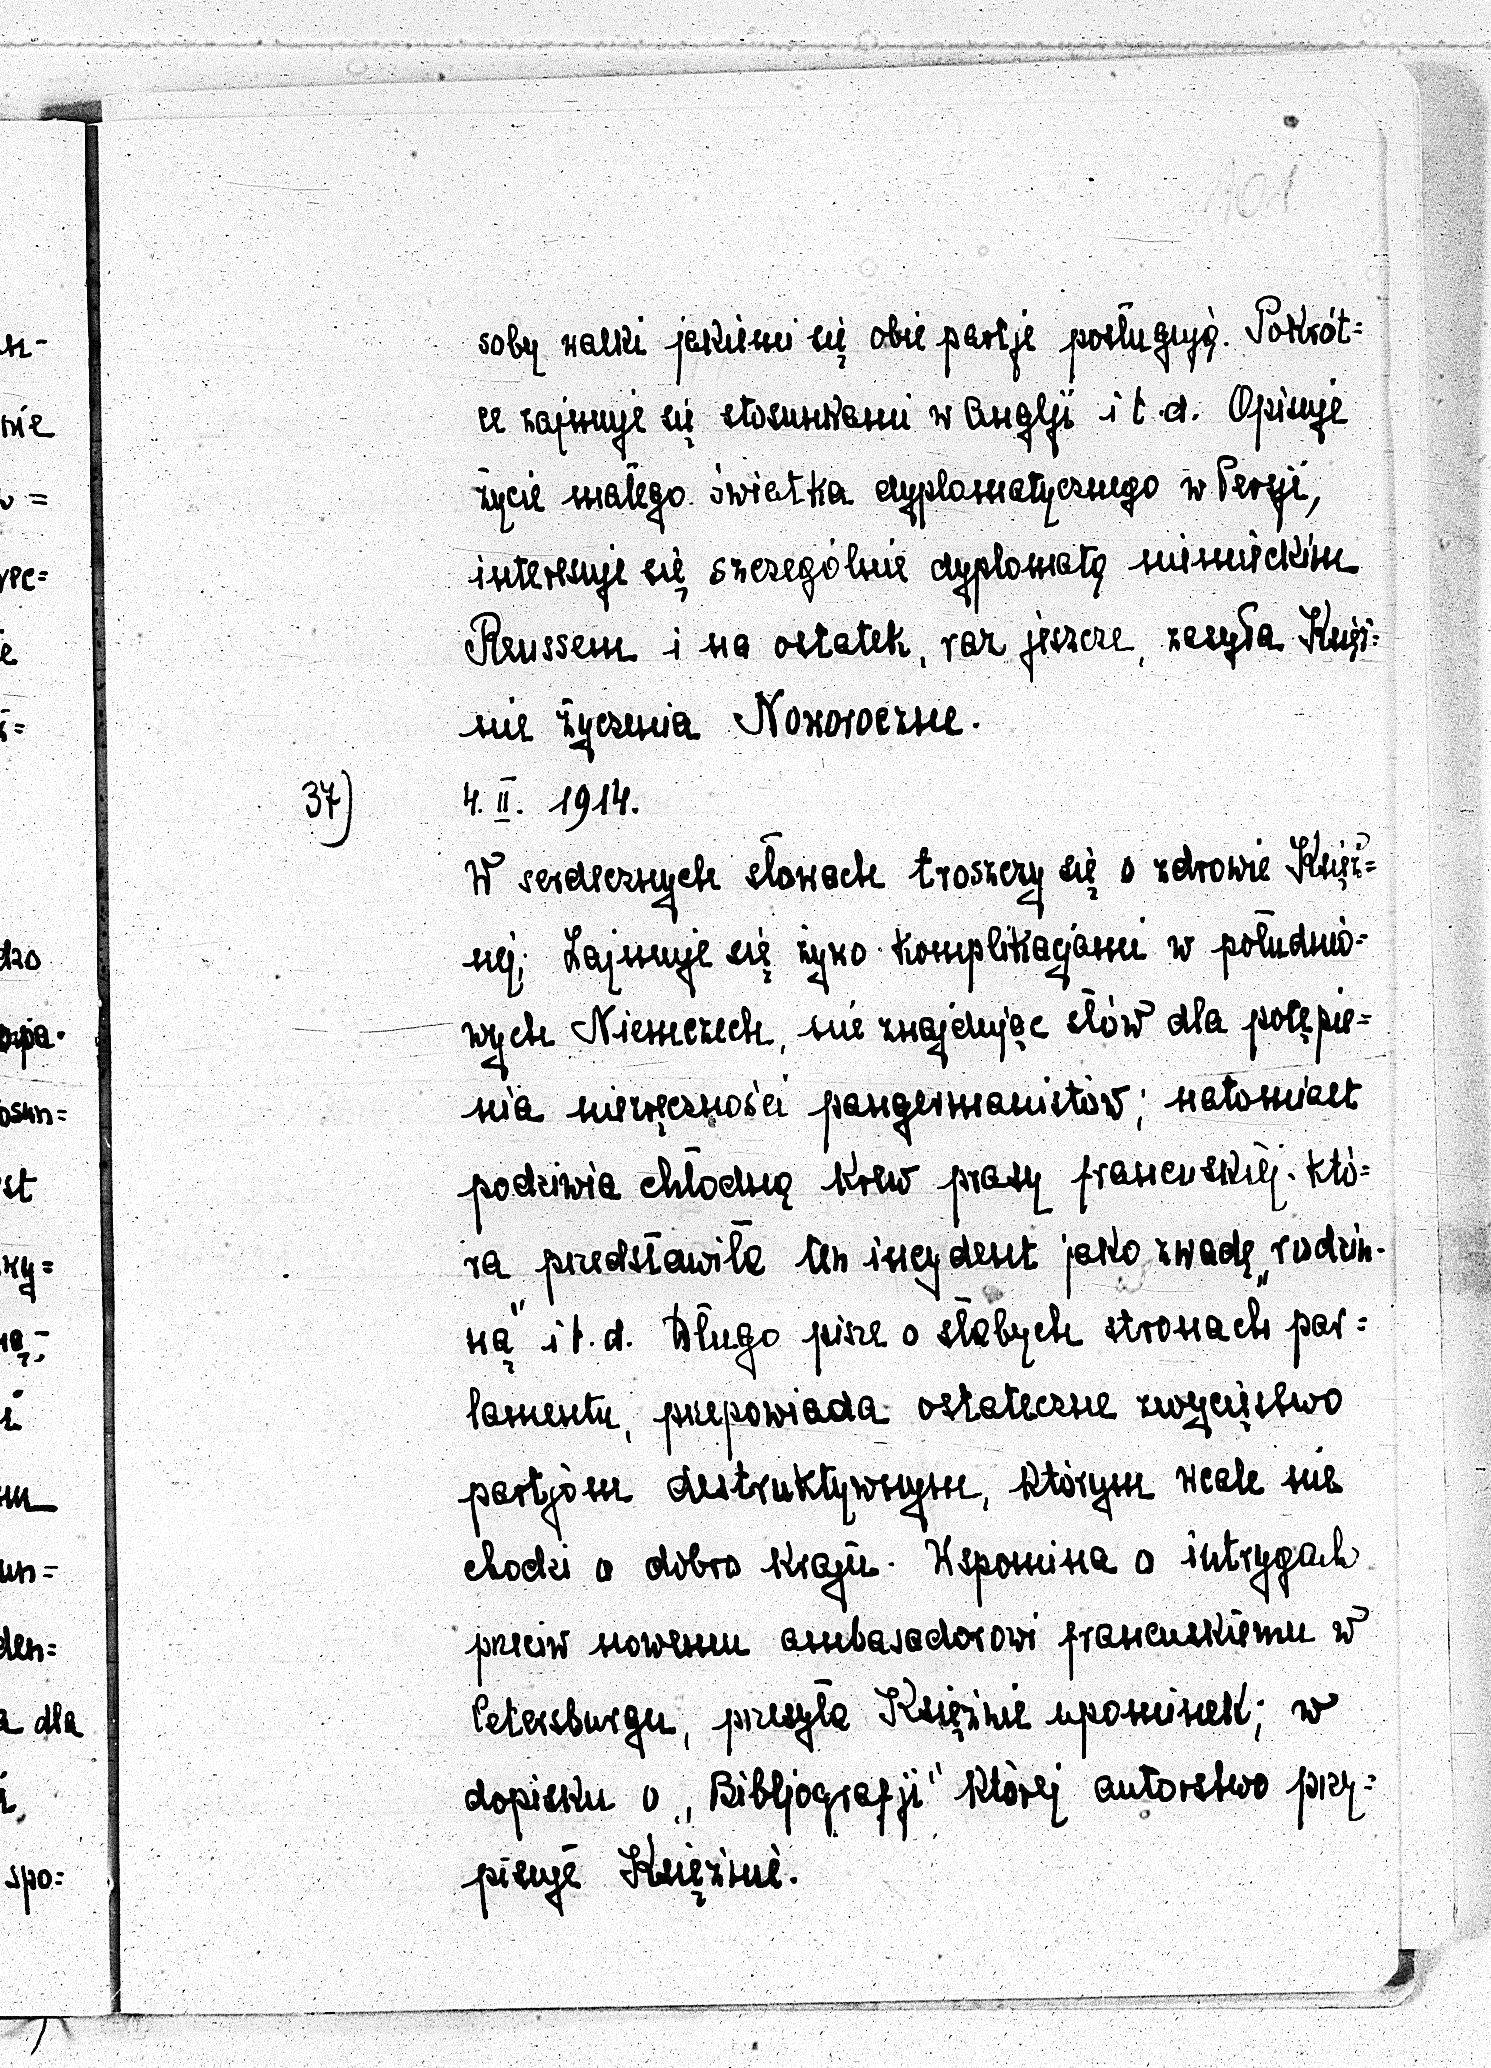 101
soby walki jakiemi się obie partje posługują. Pokrót=
ce zajmuje się stosunkami w Anglji i t.d. Opisuje
życie małego światka dyplomatycznego w Persji,
interesuje się szczególnie dyplomatą niemieckim
Reussem i na ostatek, raz jeszcze, zasyła Księż=
nie życzenia Noworoczne.
37) 4. II. 1914.
W serdecznych słowach troszczy się o zdrowie Księż=
nej; Zajmuje się żywo komplikacjami w południo=
wych Niemczech, nie znajdując słów dla potępie=
nia niezręczności pangermanistów; natomiast
podziwia chłodną krew prasy francuskiej. któ=
ra przedstawiła ten incydent jako zwadę „rodzin-
ną" i t.d. Długo pisze o słabych stronach par=
lamentu, przepowiada ostateczne zwycięstwo
partjom destruktywnym, którym wcale nie
chodzi o dobro kraju. Wspomina o intrygach
przeciw nowemu ambasadorowi francuskiemu w
Petersburgu, przesyła Księżnie upominek; w
dopisku o „Bibljografji" której autorstwo przy=
pisuje Księżnie.
nie
dzo
st
dla
spo=